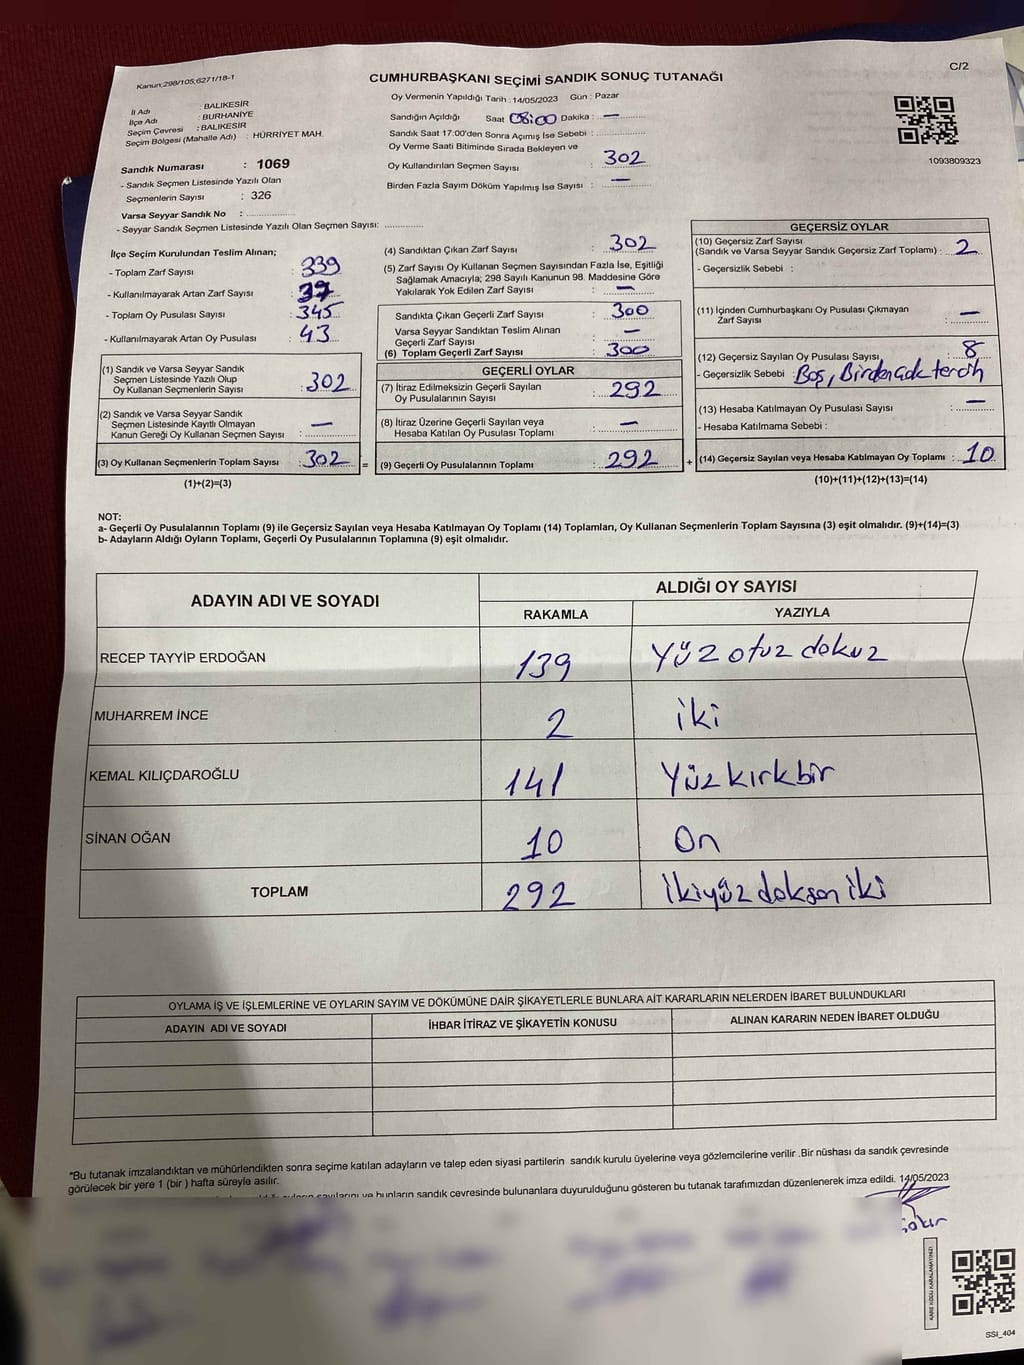 Kanun:298/105;6271/18-1
CUMHURBAŞKANI SEÇİMİ SANDIK SONUÇ TUTANAĞI
C/2
İl Adı : BALIKESİR
İlçe Adı : BURHANİYE
Seçim Çevresi : BALIKESİR
Seçim Bölgesi (Mahalle Adı) : HÜRRİYET MAH.
Sandık Numarası : 1069
- Sandık Seçmen Listesinde Yazılı Olan
Seçmenlerin Sayısı : 326
Varsa Seyyar Sandık No : ...............
- Seyyar Sandık Seçmen Listesinde Yazılı Olan Seçmen Sayısı: ..............
Oy Vermenin Yapıldığı Tarih : 14/05/2023 Gün : Pazar
Sandığın Açıldığı Saat 08:00 Dakika : —
Sandık Saat 17:00'den Sonra Açımış İse Sebebi : ..............
Oy Verme Saati Bitiminde Sırada Bekleyen ve
Oy Kullandırılan Seçmen Sayısı : 302
Birden Fazla Sayım Döküm Yapılmış İse Sayısı : —
1093809323
İlçe Seçim Kurulundan Teslim Alınan;
- Toplam Zarf Sayısı : 339
- Kullanılmayarak Artan Zarf Sayısı : 37
- Toplam Oy Pusulası Sayısı : 345
- Kullanılmayarak Artan Oy Pusulası : 43
(1) Sandık ve Varsa Seyyar Sandık
Seçmen Listesinde Yazılı Olup
Oy Kullanan Seçmenlerin Sayısı : 302
(2) Sandık ve Varsa Seyyar Sandık
Seçmen Listesinde Kayıtlı Olmayan
Kanun Gereği Oy Kullanan Seçmen Sayısı : —
(3) Oy Kullanan Seçmenlerin Toplam Sayısı : 302 =
(1)+(2)=(3)
(4) Sandıktan Çıkan Zarf Sayısı : 302
(5) Zarf Sayısı Oy Kullanan Seçmen Sayısından Fazla İse, Eşitliği
Sağlamak Amacıyla; 298 Sayılı Kanunun 98. Maddesine Göre
Yakılarak Yok Edilen Zarf Sayısı : —
Sandıkta Çıkan Geçerli Zarf Sayısı : 300
Varsa Seyyar Sandıktan Teslim Alınan
Geçerli Zarf Sayısı : —
(6) Toplam Geçerli Zarf Sayısı : 300
GEÇERLİ OYLAR
(7) İtiraz Edilmeksizin Geçerli Sayılan
Oy Pusulalarının Sayısı : 292
(8) İtiraz Üzerine Geçerli Sayılan veya
Hesaba Katılan Oy Pusulası Toplamı : —
(9) Geçerli Oy Pusulalarının Toplamı : 292 +
GEÇERSİZ OYLAR
(10) Geçersiz Zarf Sayısı
(Sandık ve Varsa Seyyar Sandık Geçersiz Zarf Toplamı) : 2
- Geçersizlik Sebebi :
(11) İçinden Cumhurbaşkanı Oy Pusulası Çıkmayan
Zarf Sayısı : —
(12) Geçersiz Sayılan Oy Pusulası Sayısı : 8
- Geçersizlik Sebebi : Boş, Birden çok tercih
(13) Hesaba Katılmayan Oy Pusulası Sayısı : —
- Hesaba Katılmama Sebebi :
(14) Geçersiz Sayılan veya Hesaba Katılmayan Oy Toplamı : 10
(10)+(11)+(12)+(13)=(14)
NOT:
a- Geçerli Oy Pusulalarının Toplamı (9) ile Geçersiz Sayılan veya Hesaba Katılmayan Oy Toplamı (14) Toplamları, Oy Kullanan Seçmenlerin Toplam Sayısına (3) eşit olmalıdır. (9)+(14)=(3)
b- Adayların Aldığı Oyların Toplamı, Geçerli Oy Pusulalarının Toplamına (9) eşit olmalıdır.
ADAYIN ADI VE SOYADI ALDIĞI OY SAYISI
RAKAMLA YAZIYLA
RECEP TAYYİP ERDOĞAN 139 Yüz otuz dokuz
MUHARREM İNCE 2 iki
KEMAL KILIÇDAROĞLU 141 Yüz kırk bir
SİNAN OĞAN 10 On
TOPLAM 292 İkiyüz doksan iki
OYLAMA İŞ VE İŞLEMLERİNE VE OYLARIN SAYIM VE DÖKÜMÜNE DAİR ŞİKAYETLERLE BUNLARA AİT KARARLARIN NELERDEN İBARET BULUNDUKLARI
ADAYIN ADI VE SOYADI İHBAR İTİRAZ VE ŞİKAYETİN KONUSU ALINAN KARARIN NEDEN İBARET OLDUĞU
*Bu tutanak imzalandıktan ve mühürlendikten sonra seçime katılan adayların ve talep eden siyasi partilerin sandık kurulu üyelerine veya gözlemcilerine verilir .Bir nüshası da sandık çevresinde
görülecek bir yere 1 (bir ) hafta süreyle asılır.
sayılarını ve bunların sandık çevresinde bulunanlara duyurulduğunu gösteren bu tutanak tarafımızdan düzenlenerek imza edildi. 14/05/2023
KARE KODU KARALAMAYINIZ!
SSI_404